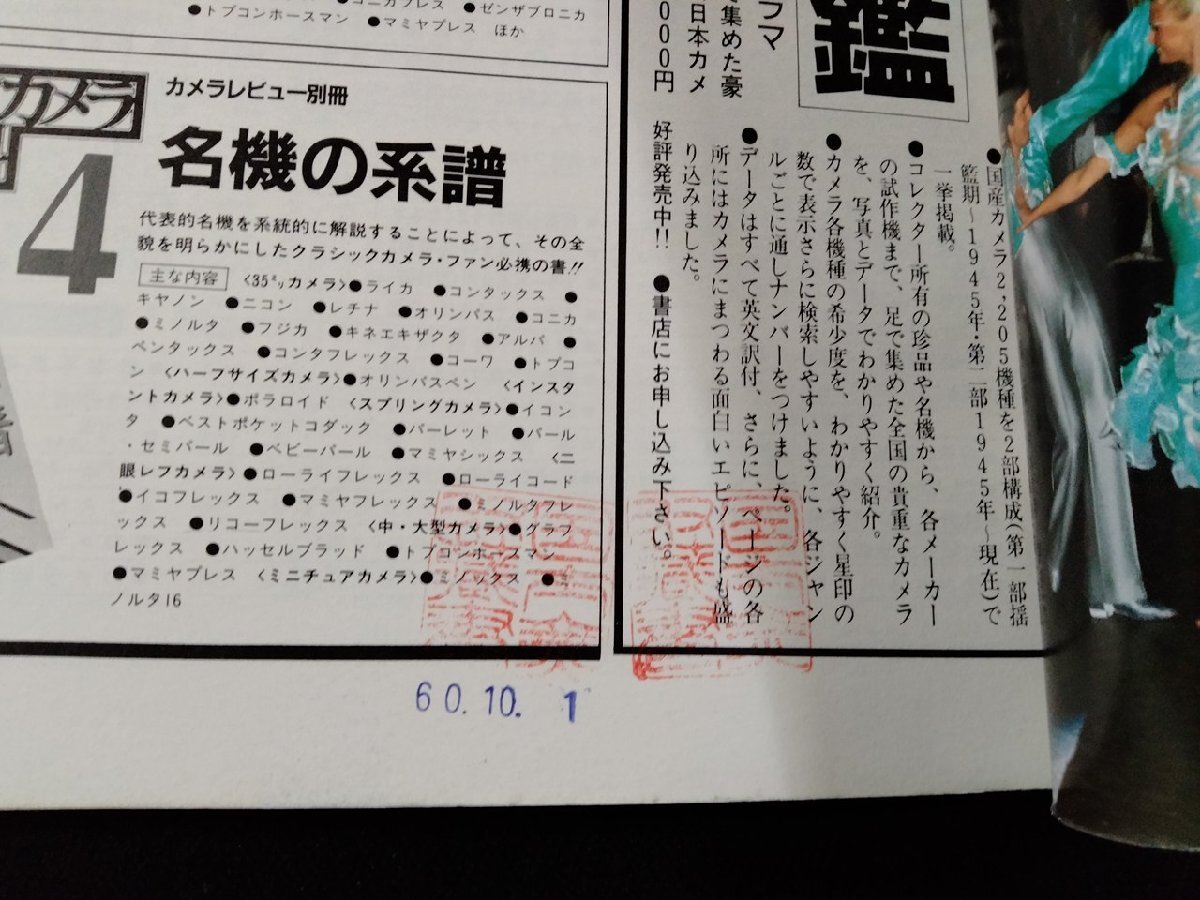 ●コニカプレス ●ゼンザブロニカ
●トプコンホースマン ●マミヤプレス ほか
カメラ
4
カメラレビュー別冊
名機の系譜
代表的名機を系統的に解説することによって、その全
貌を明らかにしたクラシックカメラ・ファン必携の書!!
主な内容 〈35㍉カメラ〉●ライカ ●コンタックス ●
キヤノン ●ニコン ●レチナ ●オリンパス ●コニカ
●ミノルタ ●フジカ ●キネエキザクタ ●アルパ ●
ペンタックス ●コンタフレックス ●コーワ ●トプコ
ン 〈ハーフサイズカメラ〉●オリンパスペン 〈インスタ
ントカメラ〉●ポラロイド 〈スプリングカメラ〉●イコン
タ ●ベストポケットコダック ●パーレット ●パール
・セミパール ●ベビーパール ●マミヤシックス 〈二
眼レフカメラ〉●ローライフレックス ●ローライコード
●イコフレックス ●マミヤフレックス ●ミノルタフレ
ックス ●リコーフレックス 〈中・大型カメラ〉●グラフ
レックス ●ハッセルブラッド ●トプコンホースマン
●マミヤプレス 〈ミニチュアカメラ〉●ミノックス ●ミ
ノルタ16
鑑
フマ
集めた豪
日本カメ
000円
●国産カメラ2,205機種を2部構成(第一部揺
籃期~1945年・第二部1945年~現在)で
一挙掲載。
●コレクター所有の珍品や名機から、各メーカー
の試作機まで、足で集めた全国の貴重なカメラ
を、写真とデータでわかりやすく紹介。
●カメラ各機種の希少度を、わかりやすく星印の
数で表示さらに検索しやすいように、各ジャン
ルごとに通しナンバーをつけました。
●データはすべて英文訳付、さらに、ページの各
所にはカメラにまつわる面白いエピソードも盛
り込みました。
好評発売中!! ●書店にお申し込み下さい。
60.10. 1